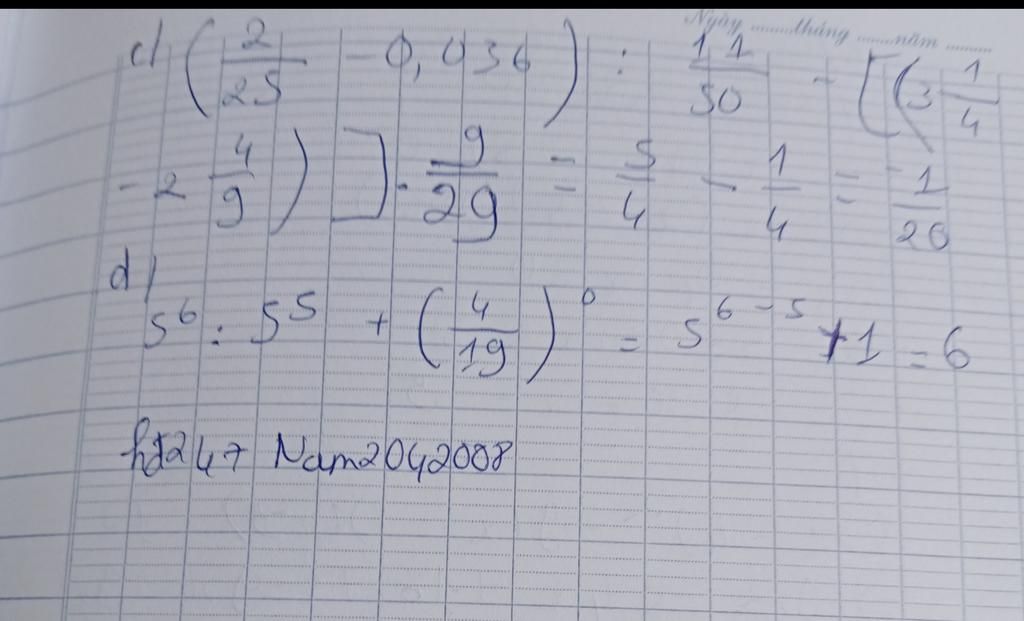 Ngày ........tháng ......năm ........
c) (2/25 - 0,036) : 11/50 - [(3 1/4
- 2 4/9)] . 9/29 = 5/4 - 1/4 = -1/20
d) 5⁶ : 5⁵ + (4/19)⁰ = 5⁶⁻⁵ + 1 = 6
hd247 Nam2042008